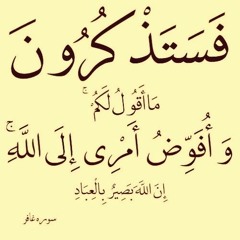 فَسَتَذْكُرُونَ
مَا أَقُولُ لَكُمْ ۚ
وَ أُفَوِّضُ أَمْرِى إِلَى اللَّهِ ۚ
إِنَّ اللَّهَ بَصِيرٌ بِالْعِبَادِ
سوره غافر